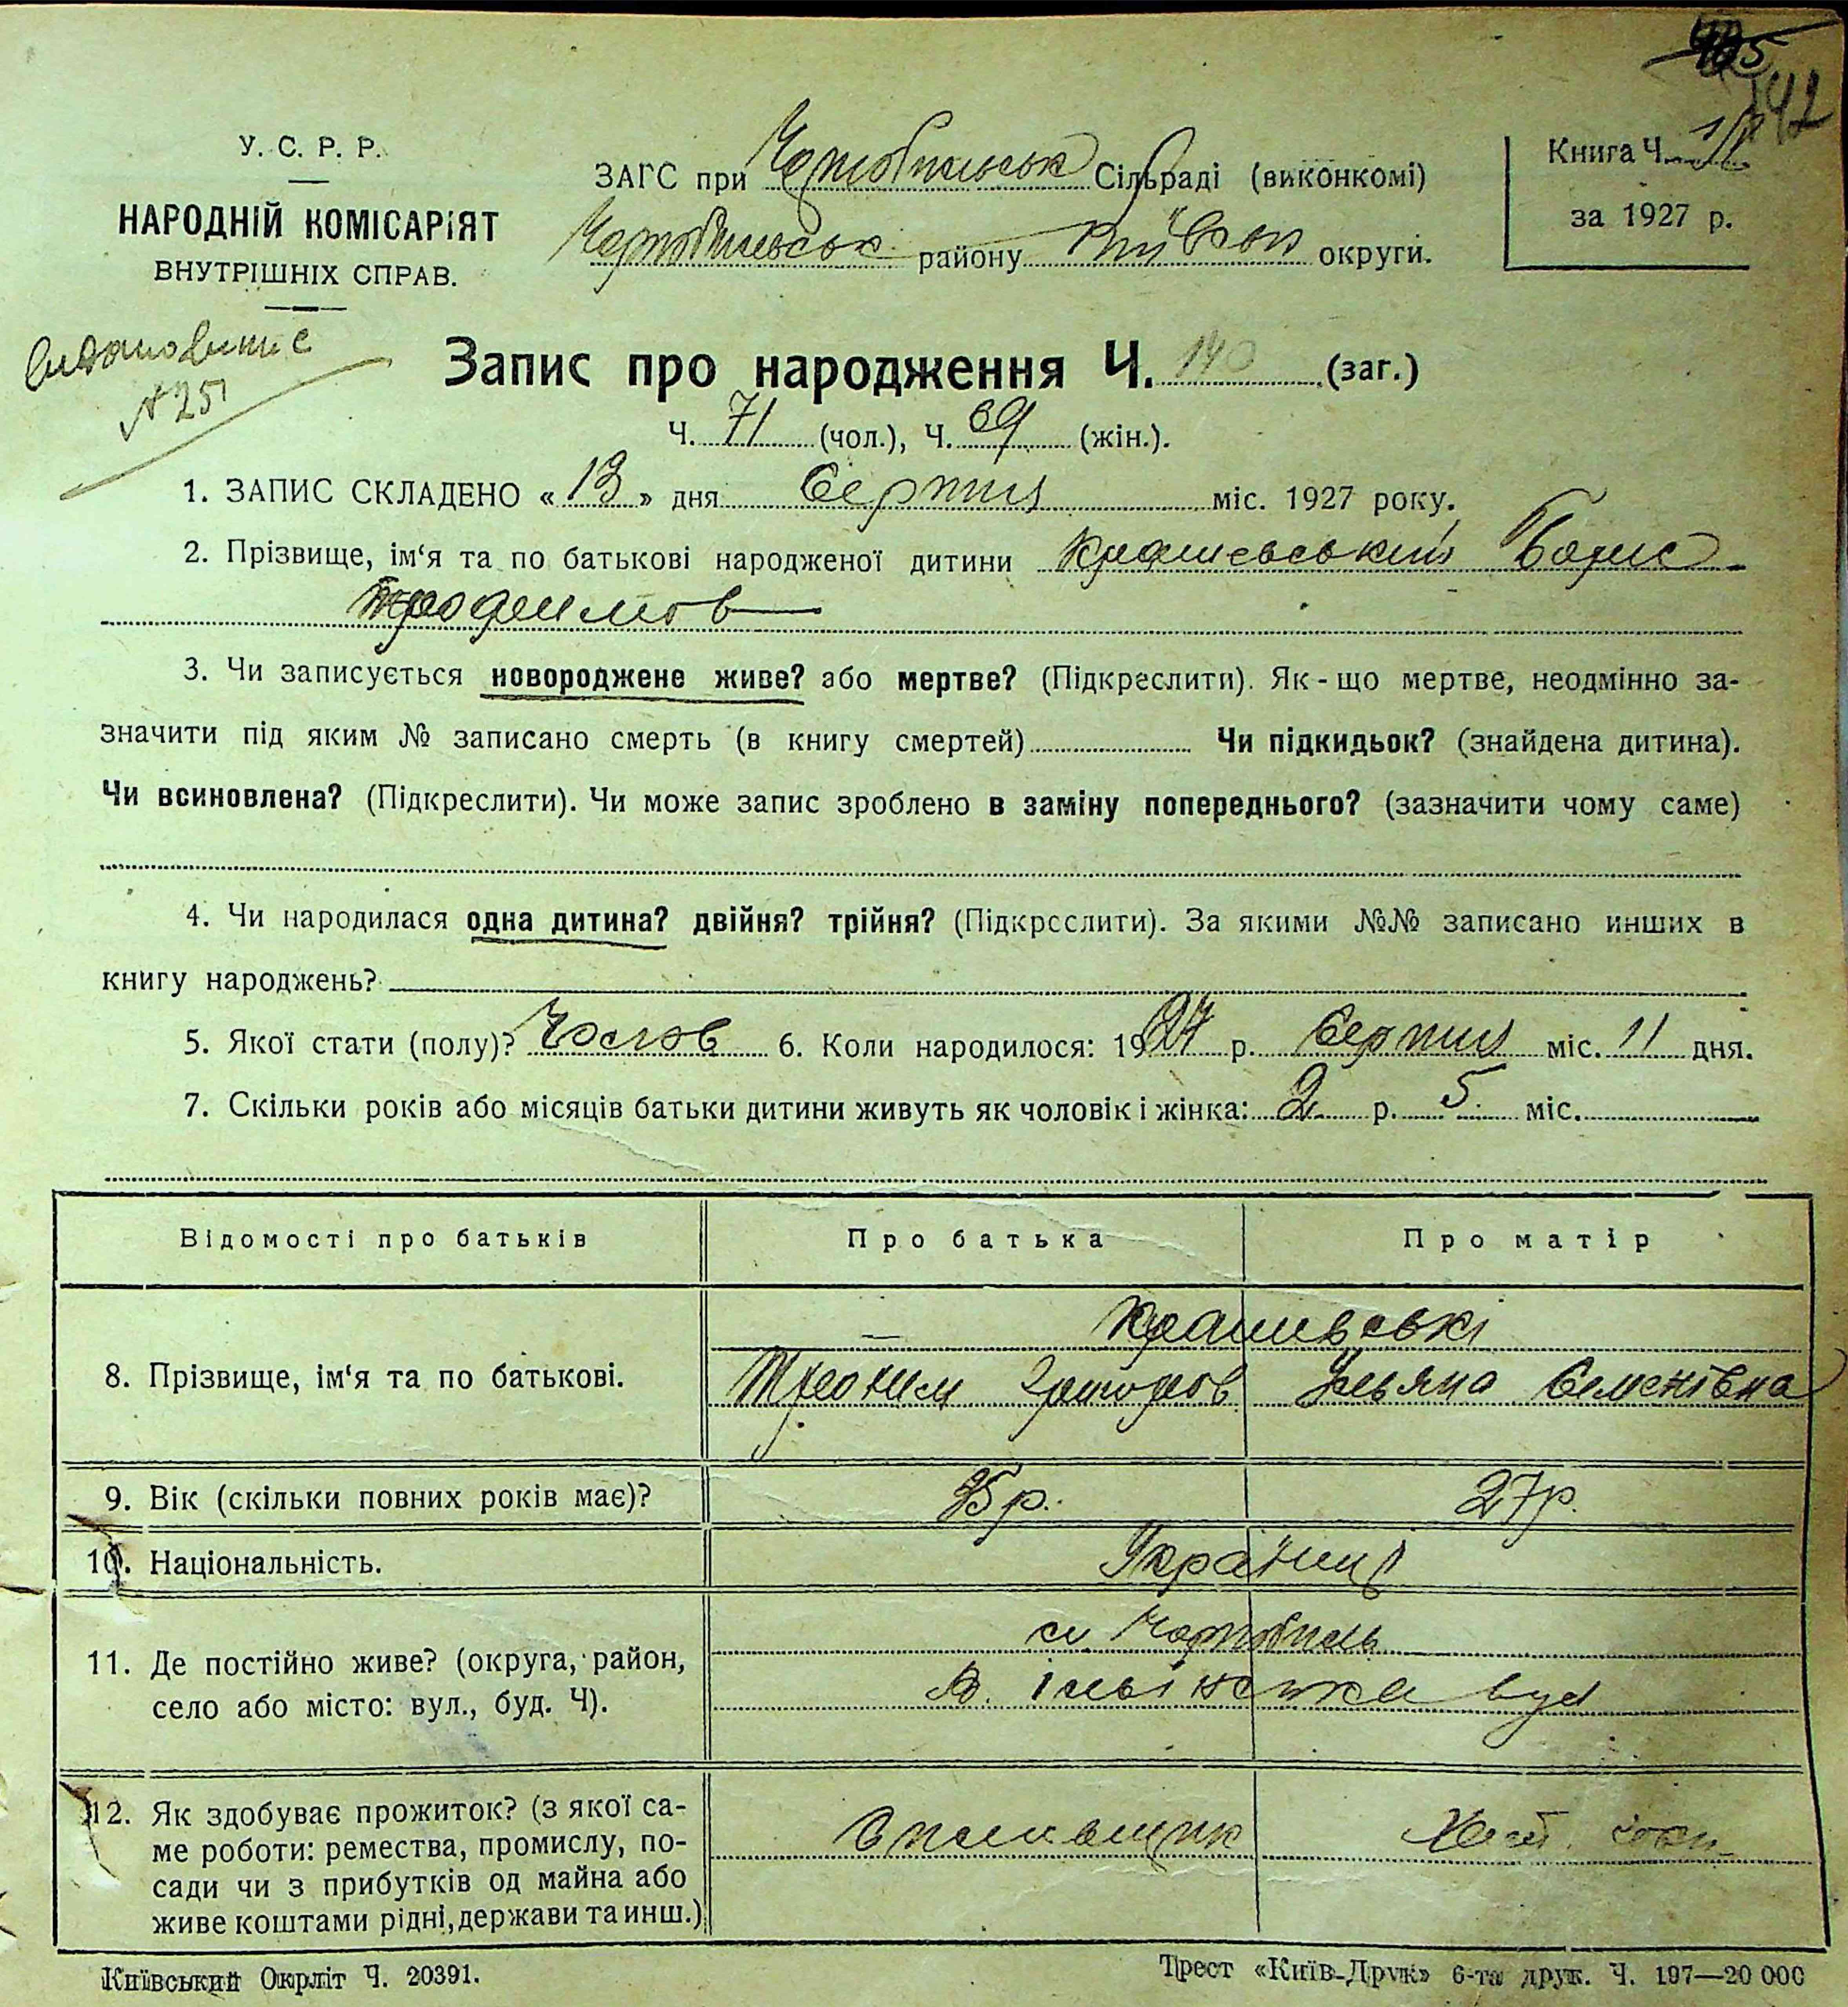 142
У. С. Р. Р.
НАРОДНІЙ КОМІСАРІЯТ
ВНУТРІШНІХ СПРАВ.
ЗАГС при Чорнобильськ Сільраді (виконкомі)
Чорнобильськ району Київськ округи.
Книга Ч.
за 1927 р.
N 251
Запис про народження Ч. 140 (заг.)
Ч. 71 (чол.), Ч. 69 (жін.).
1. ЗАПИС СКЛАДЕНО « 13 » дня Серпня міс. 1927 року.
2. Прізвище, ім‘я та по батькові народженої дитини Крашевський Борис
3. Чи записується новороджене живе? або мертве? (Підкреслити). Як-що мертве, неодмінно за-
значити під яким № записано смерть (в книгу смертей) Чи підкидьок? (знайдена дитина).
Чи всиновлена? (Підкреслити). Чи може запис зроблено в заміну попереднього? (зазначити чому саме)
4. Чи народилася одна дитина? двійня? трійня? (Підкреслити). За якими №№ записано инших в
книгу народжень?
5. Якої стати (полу)? Чолов 6. Коли народилося: 1927 р. Серпня міс. 11 дня.
7. Скільки років або місяців батьки дитини живуть як чоловік і жінка: 2 р. 5 міс.
Відомості про батьків Про батька Про матір
8. Прізвище, ім‘я та по батькові.
Крашивські
Трохим Григоров Ульяна Семенівна
9. Вік (скільки повних років має)? 25 р. 27 р.
10. Національність. Українці
11. Де постійно живе? (округа, район,
село або місто: вул., буд. Ч).
м. Чорнобиль
В. Ільїнська вул
12. Як здобуває прожиток? (з якої са-
ме роботи: ремества, промислу, по-
сади чи з прибутків од майна або
живе коштами рідні, держави та инш.)
Київський Окрліт Ч. 20391.
Трест «Київ-Друк» 6-та друк. Ч. 197—20 000